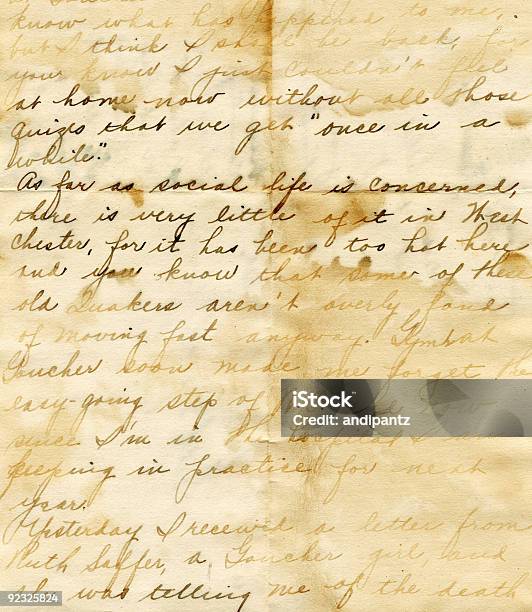 know what has happened to me,
but I think I shall be back, for
you know I just couldn't feel
at home now without all those
quizes that we get "once in a
while."
As far as social life is concerned,
there is very little of it in West
Chester, for it has been too hot here
and you know that some of these
old Quakers aren't overly fond
of moving fast anyway.
Goucher soon made me forget the
easy-going step of
since I'm in the
keeping in practice for next
year.
Yesterday I received a letter from
Ruth a Goucher girl, and
she was telling me of the death
iStock
Credit: andipantz
92325824